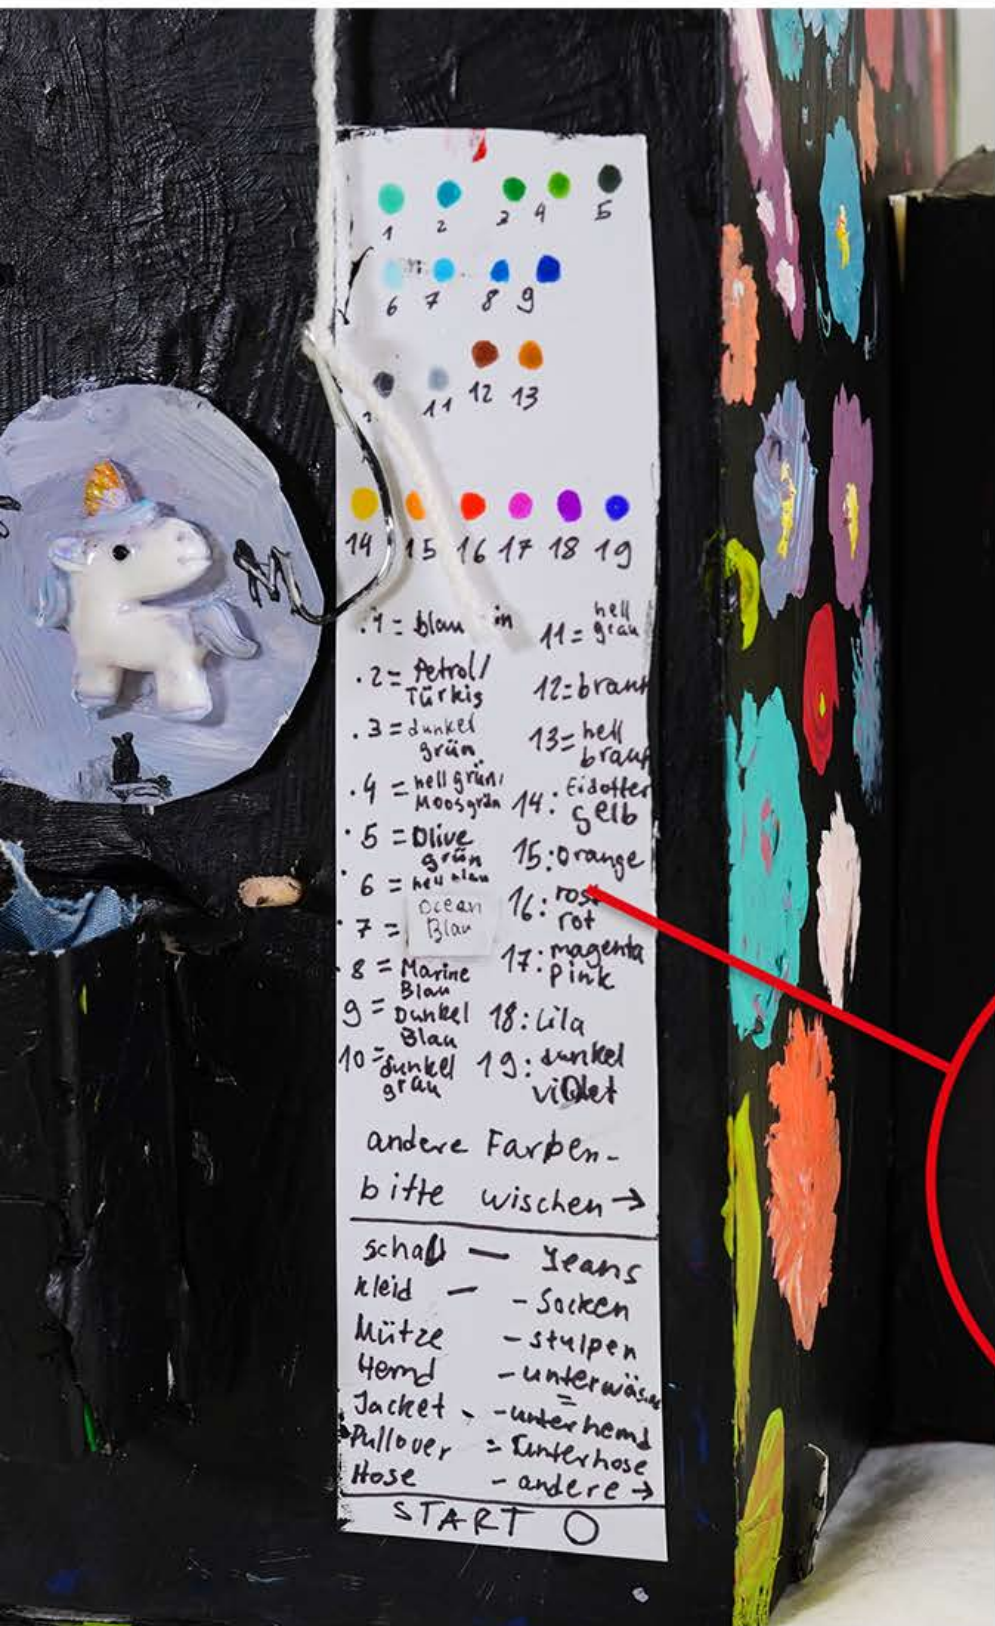 1 2 3 4 5
6 7 8 9
11 12 13
14 15 16 17 18 19
.1 =
.2 = Petrol/
Türkis
.3 = dunkel
grün
.4 = hell grün/
Moosgrün
.5 = Olive
grün
6 = hell blau
.7 = Ocean
Blau
.8 = Marine
Blau
9 = Dunkel
Blau
10 = dunkel
grau
11 = hell
grau
12 = braun
13 = hell
braun
14: Eidotter
gelb
15: Orange
16:
rot
17: magenta
pink
18: Lila
19: dunkel
violet
andere Farben-
bitte wischen →
schall — Jeans
Kleid — - Socken
Mütze - stulpen
Hemd -
Jacket - unterhemd
Pullover = Unterhose
Hose - andere →
START O